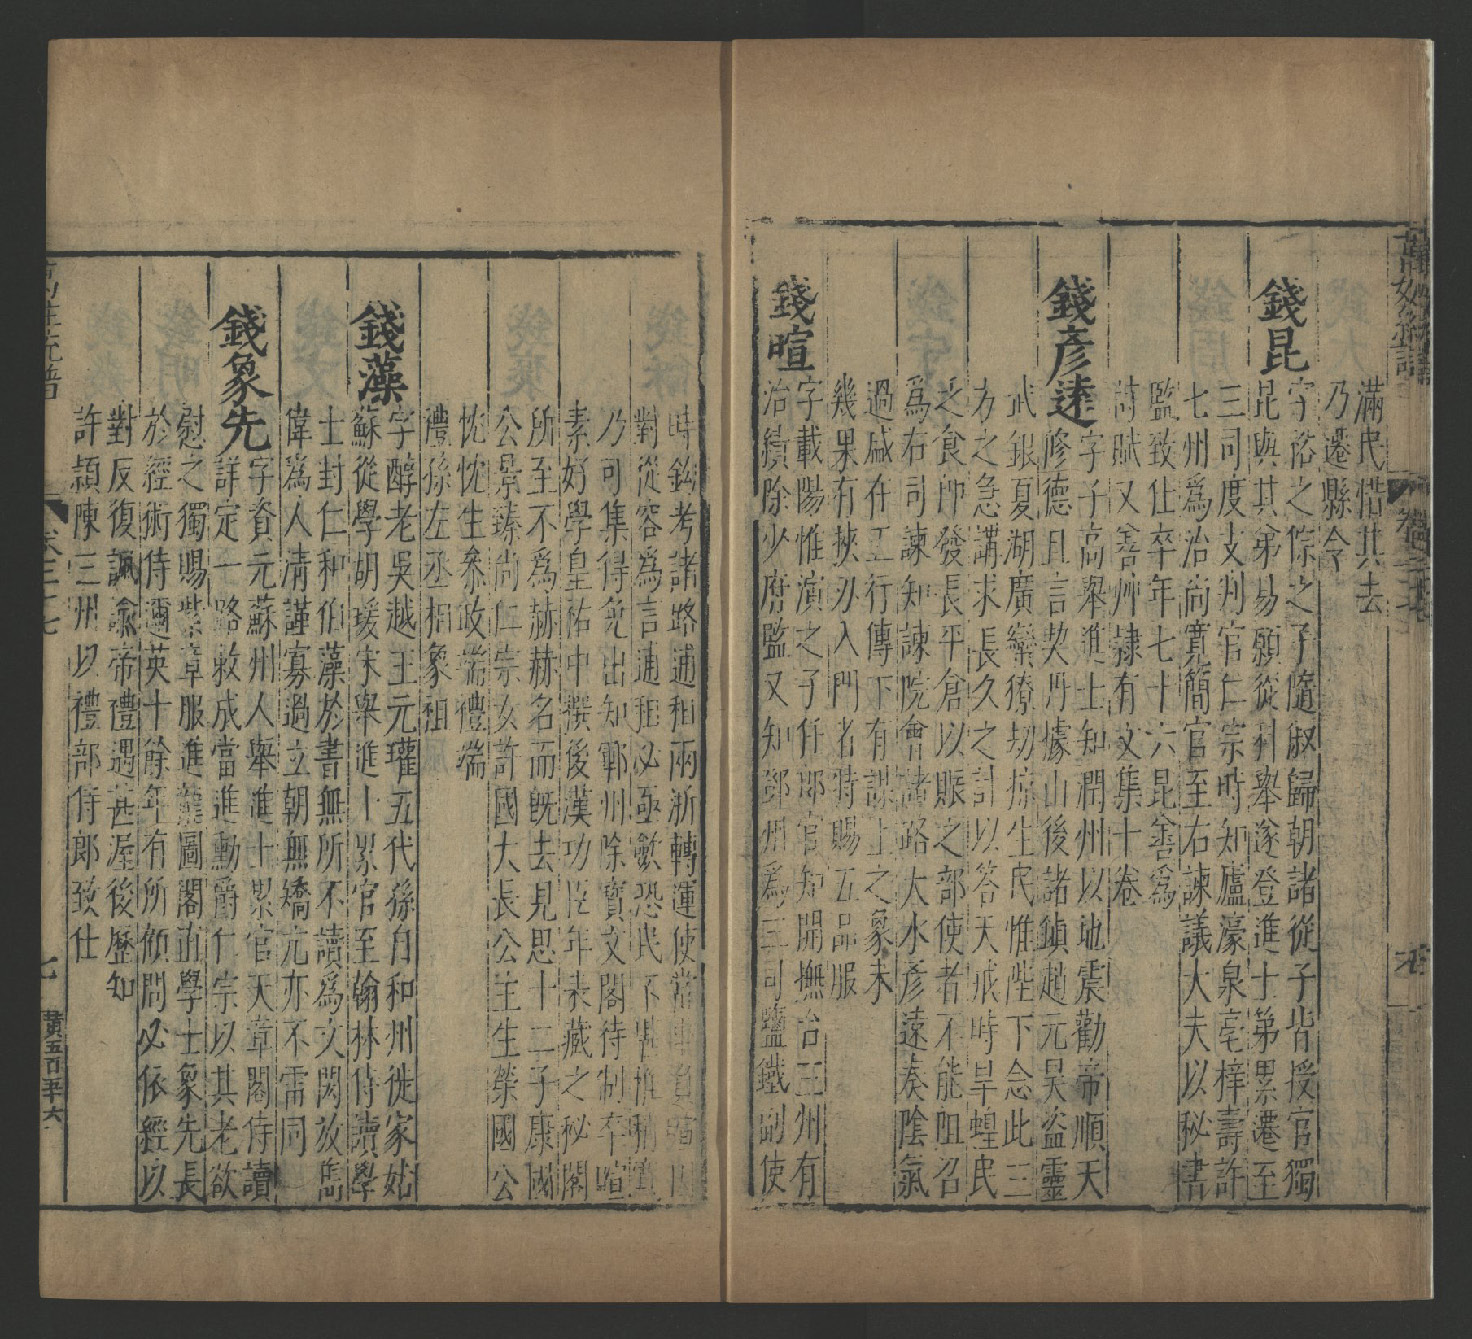 滿民惜其去
乃遷縣令
錢昆
字裕之倧之子隨俶歸朝諸從子皆授官獨
昆與其弟易願從科舉遂登進士第累遷至
三司度支判官仁宗時知廬濠泉亳梓壽許
七州爲治尚寬簡官至右諫議大夫以秘書
監致仕卒年七十六昆善爲
詩賦又善艸隸有文集十卷
錢彥遠
字子高舉進士知潤州以地震勸帝順天
修德且言契丹據山後諸鎮趙元昊盜靈
武銀夏湖廣蠻獠刼掠生民惟陛下念此三
方之急講求長久之計以答天戒時旱蝗民
乏食卽發長平倉以賑之部使者不能阻召
爲右司諫知諫院會諸路大水彥遠奏陰氣
過盛在五行傳下有謀上之象未
幾果有挾刃入門者特賜五品服
錢暄
字載陽惟演之子任郎官知開撫台三州有
治績除少府監又知鄧州爲三司鹽鐵副使
時鉤考諸路逋租兩浙轉運使常
對從容爲言逋租必亟斂恐民不堪惟
乃可集得免出知鄆州除寶文閣待制卒暄
素好學皇祐中撰後漢功臣年表藏之秘閣
所至不爲赫赫名而旣去見思十二子康國
公景臻尚仁宗女許國大長公主生榮國公
忱忱生叅政端禮端
禮孫左丞相象祖
錢藻
字醇老吳越王元瓘五代孫自和州徙家姑
蘇從學胡瑗宋舉進士累官至翰林侍讀學
士封仁和伯藻於書無所不讀爲文閎放雋
偉爲人清謹寡過立朝無矯亢亦不苟同
錢象先
字資元蘇州人舉進士累官天章閣侍讀
詳定一路敕成當進勳爵仁宗以其老欲
慰之獨賜紫章服進龍圖閣直學士象先長
於經術侍邇英十餘年有所顧問必依經以
對反復諷諭帝禮遇甚渥後歷知
許潁陳三州以禮部侍郎致仕